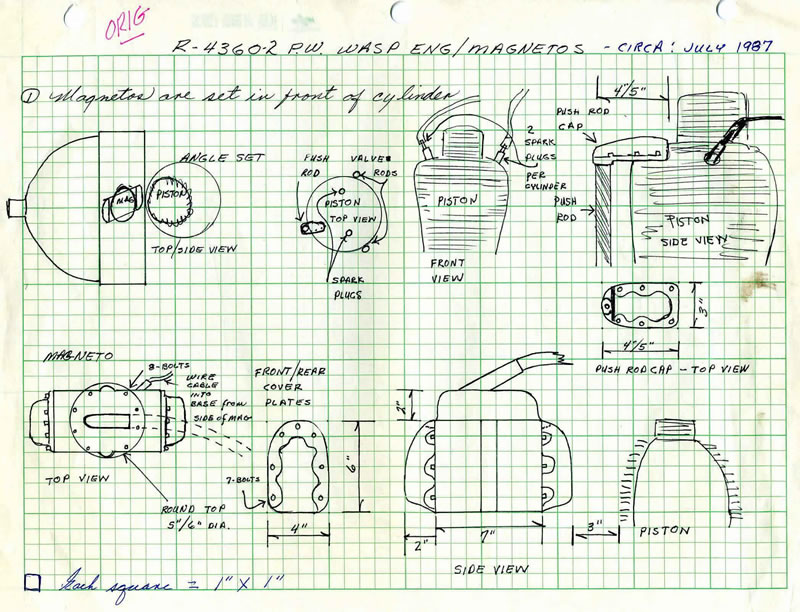 ORIG
R-4360-2 P.W. WASP ENG/MAGNETOS - CIRCA: JULY 1987
① Magnetos are set in front of cylinder
ANGLE SET
MAG
PISTON
TOP/SIDE VIEW
PUSH
ROD
VALVE
RODS
PISTON
TOP VIEW
SPARK
PLUGS
2
SPARK
PLUGS
PER
CYLINDER
PISTON
FRONT
VIEW
4"/5"
PUSH ROD
CAP
PUSH
ROD
PISTON
SIDE VIEW
3"
4"/5"
PUSH ROD CAP - TOP VIEW
MAGNETO
8-BOLTS
WIRE
CABLE
INTO
BASE from
SIDE of MAG
TOP VIEW
ROUND TOP
5"/6" DIA.
FRONT/REAR
COVER
PLATES
7-BOLTS
6"
4"
2"
2"
7"
3"
SIDE VIEW
PISTON
Each square = 1" X 1"